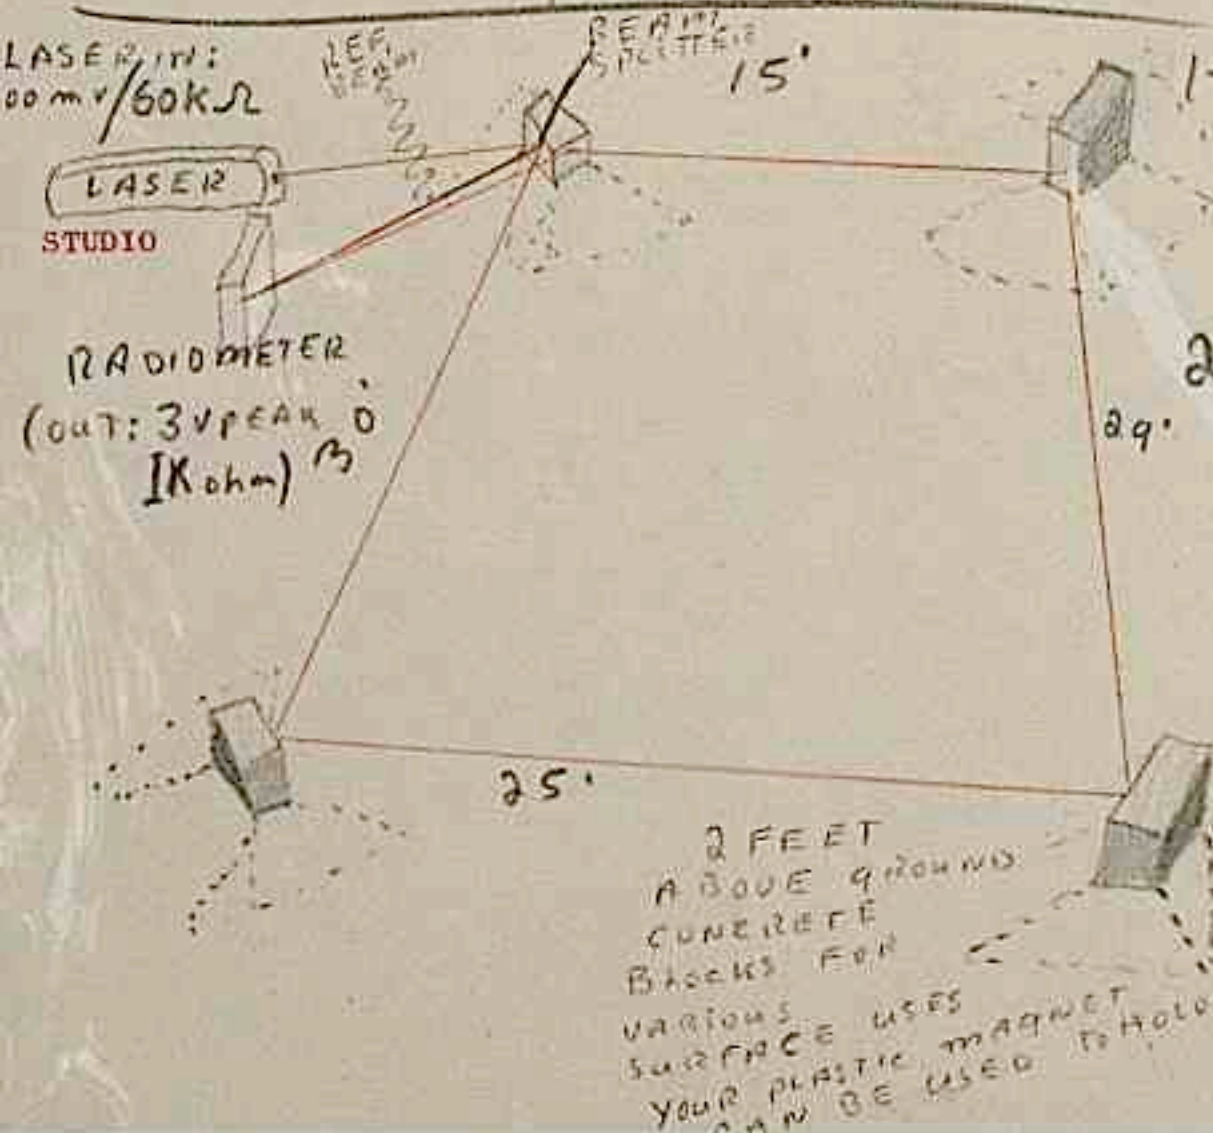 LASER IN:
00 mv/60KΩ
REF.
BEAM
BEAM
SPLITTER
15'
LASER
STUDIO
RADIOMETER
(OUT: 3VPEAK
IKohm)
29'
25'
2 FEET
ABOVE GROUND
CONCRETE
BLOCKS FOR
VARIOUS
SURFACE USES
YOUR PLASTIC MAGNET
CAN BE USED TO HOLD